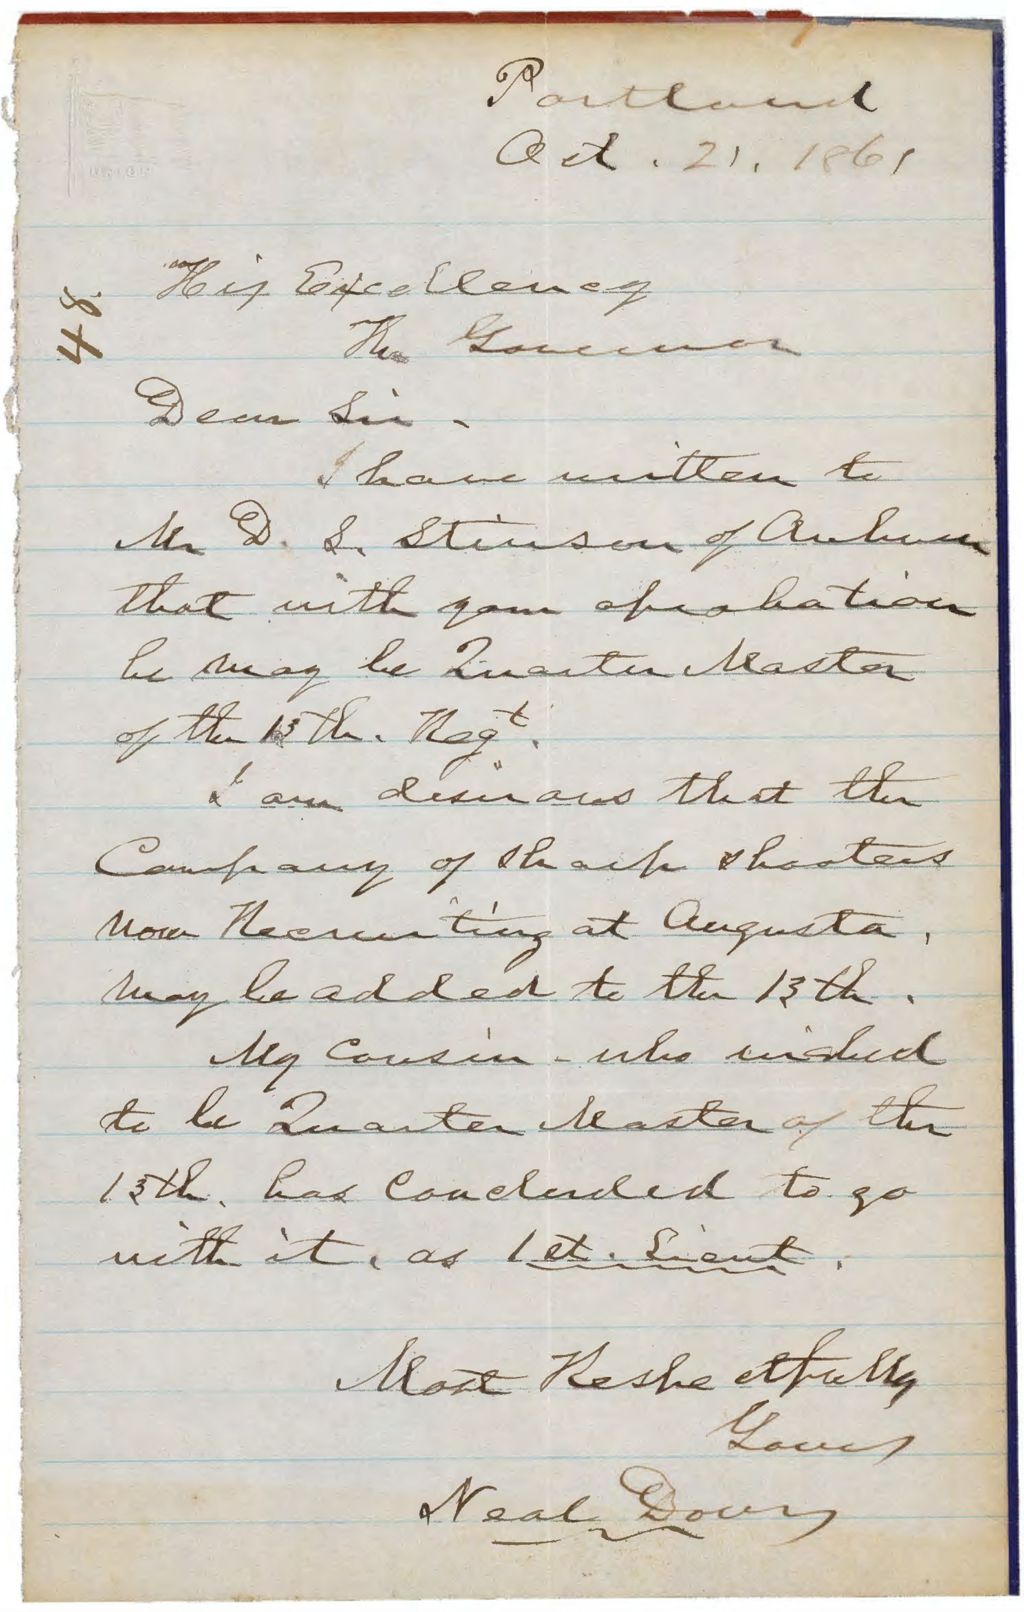 UNION
Portland
Oct. 21. 1861
48.
His Excellency
The Governor
Dear Sir -
I have written to
Mr D. S. Stinson of Auburn
that with your aprobation
he may be Quarter Master
of the 13th. Regt.
I am desirous that the
Company of sharp shooters
now Recruiting at Augusta,
may be added to the 13th.
My Cousin - who wished
to be Quarter Master of the
13th. has Concluded to go
with it, as 1st. Lieut.
Most Respectfully
Yours
Neal Dow